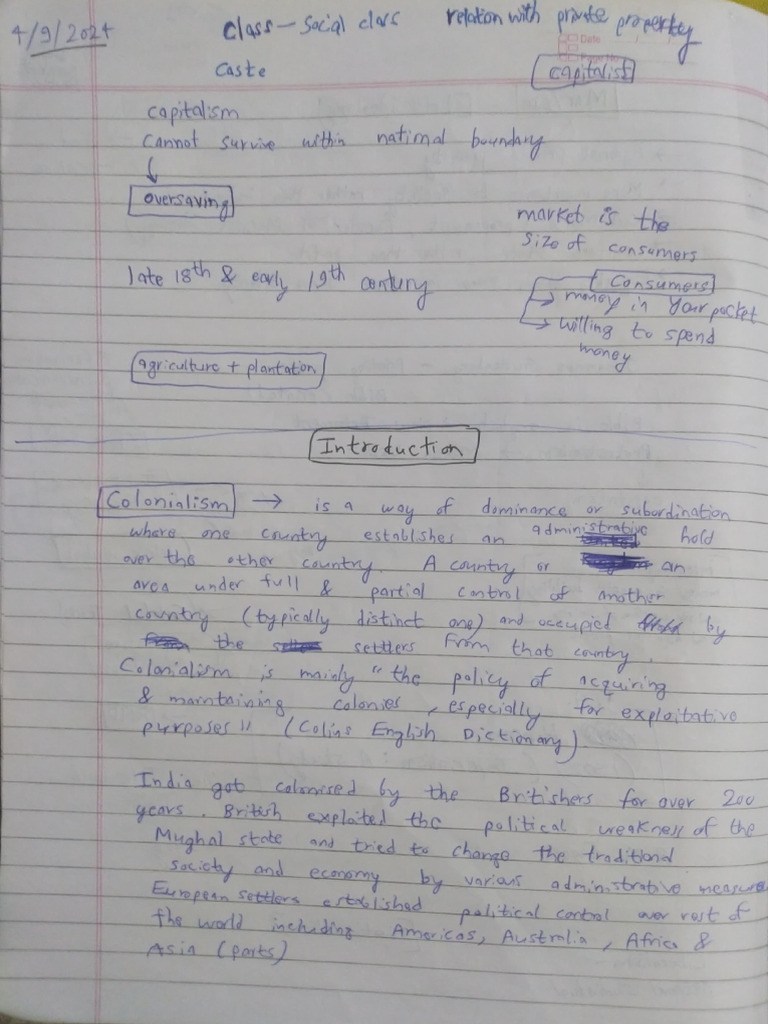 4/9/2024
Class – Social class relation with private property
Date
Page No
Caste
capitalist
capitalism
cannot survive within national boundary
↓
oversaving
market is the
size of consumers
late 18th & early 19th century
Consumers
→ money in your pocket
→ willing to spend
money
agriculture + plantation
Introduction
Colonialism → is a way of dominance or subordination
where one country establishes an administrative hold
over the other country. A country or an
area under full & partial control of another
country (typically distinct one) and occupied by
the settlers from that country.
Colonialism is mainly "the policy of acquiring
& maintaining colonies, especially for exploitative
purposes" (Colins English Dictionary)
India got colonised by the Britishers for over 200
years. British exploited the political weakness of the
Mughal state and tried to change the traditional
society and economy by various administrative measure
European settlers established political control over rest of
the world including Americas, Australia, Africa &
Asia (parts)